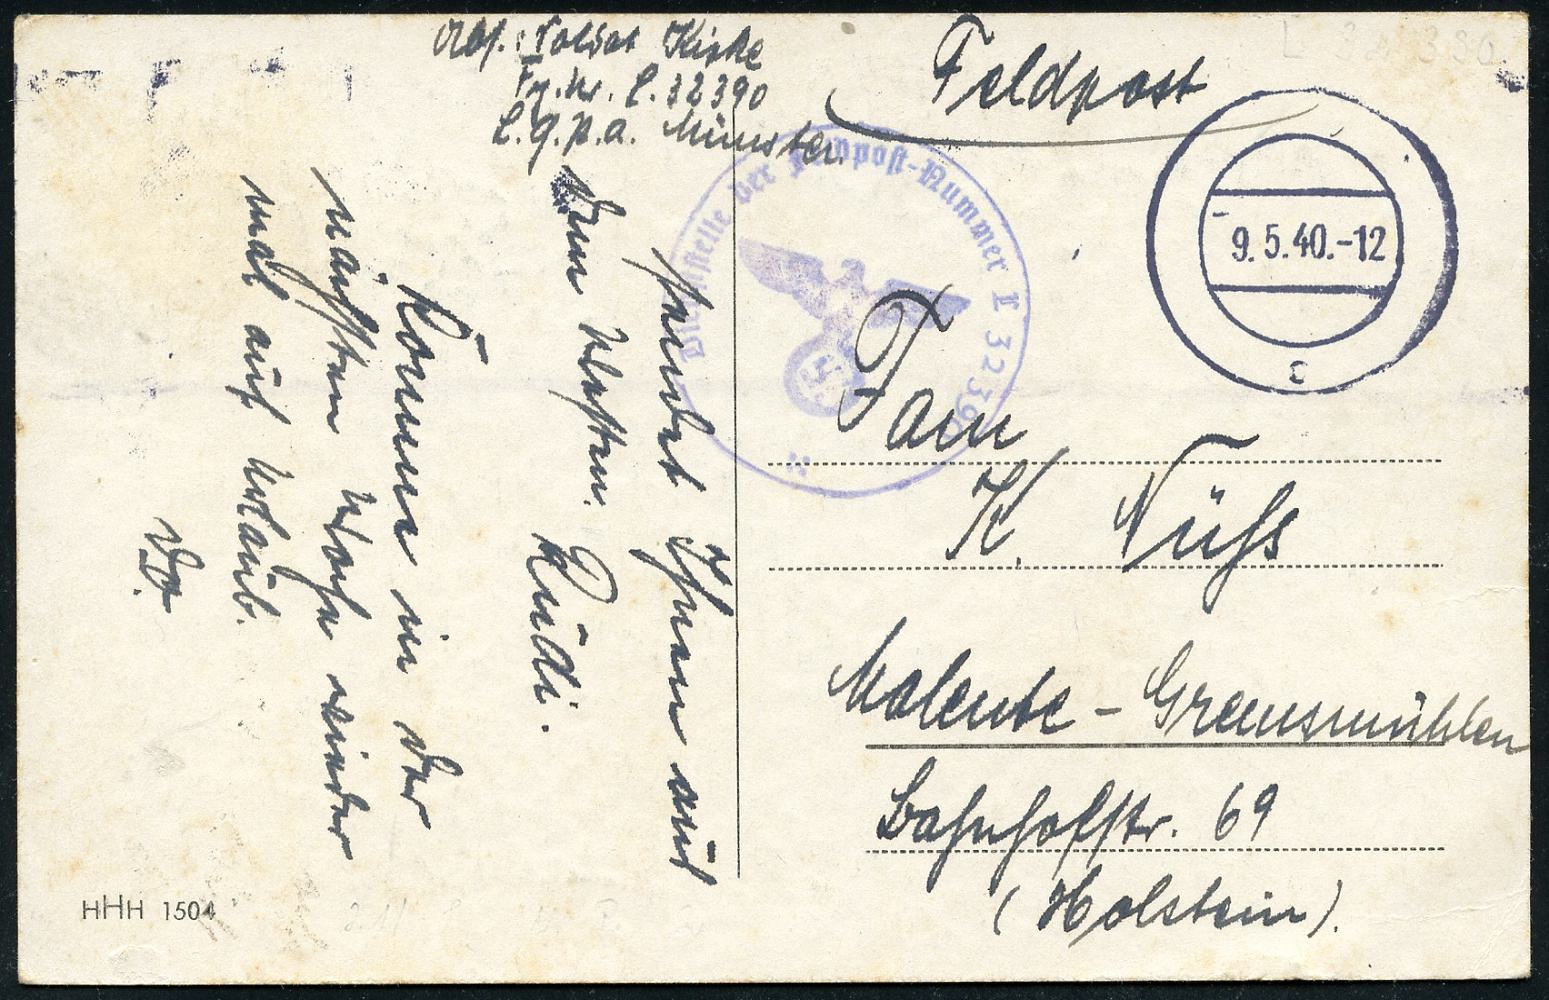 Abs.: Soldat Kipke
Fp. Nr. L. 32390
L.g.p.a. Münster
Feldpost
L 32 390
Dienststelle der Feldpost-Nummer L 32390
9.5.40.-12
c
Fam
K. Nüſs
Malente - Gremsmühlen
Bahnhofſtr. 69
(Holstein).
ſendet Ihnen aus
dem Weſten. Rudi.
Komme in der
nächſten Woche wieder
mal auf Urlaub.
D.O.
HHH 1504